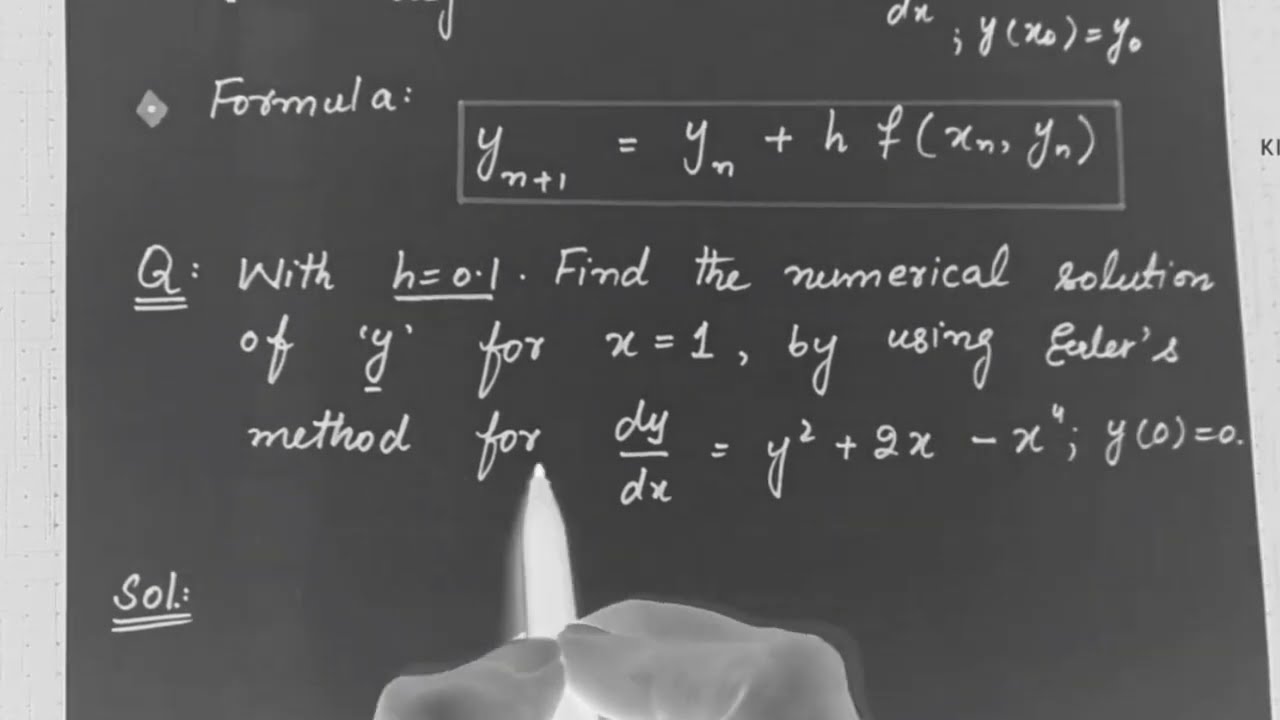 dx ; y(x₀) = y₀
Formula:
yₙ₊₁ = yₙ + h f(xₙ, yₙ)
Q: With h=0.1. Find the numerical solution
of 'y' for x = 1, by using Euler's
method for dy/dx = y² + 2x - x⁴; y(0)=0.
Sol.: